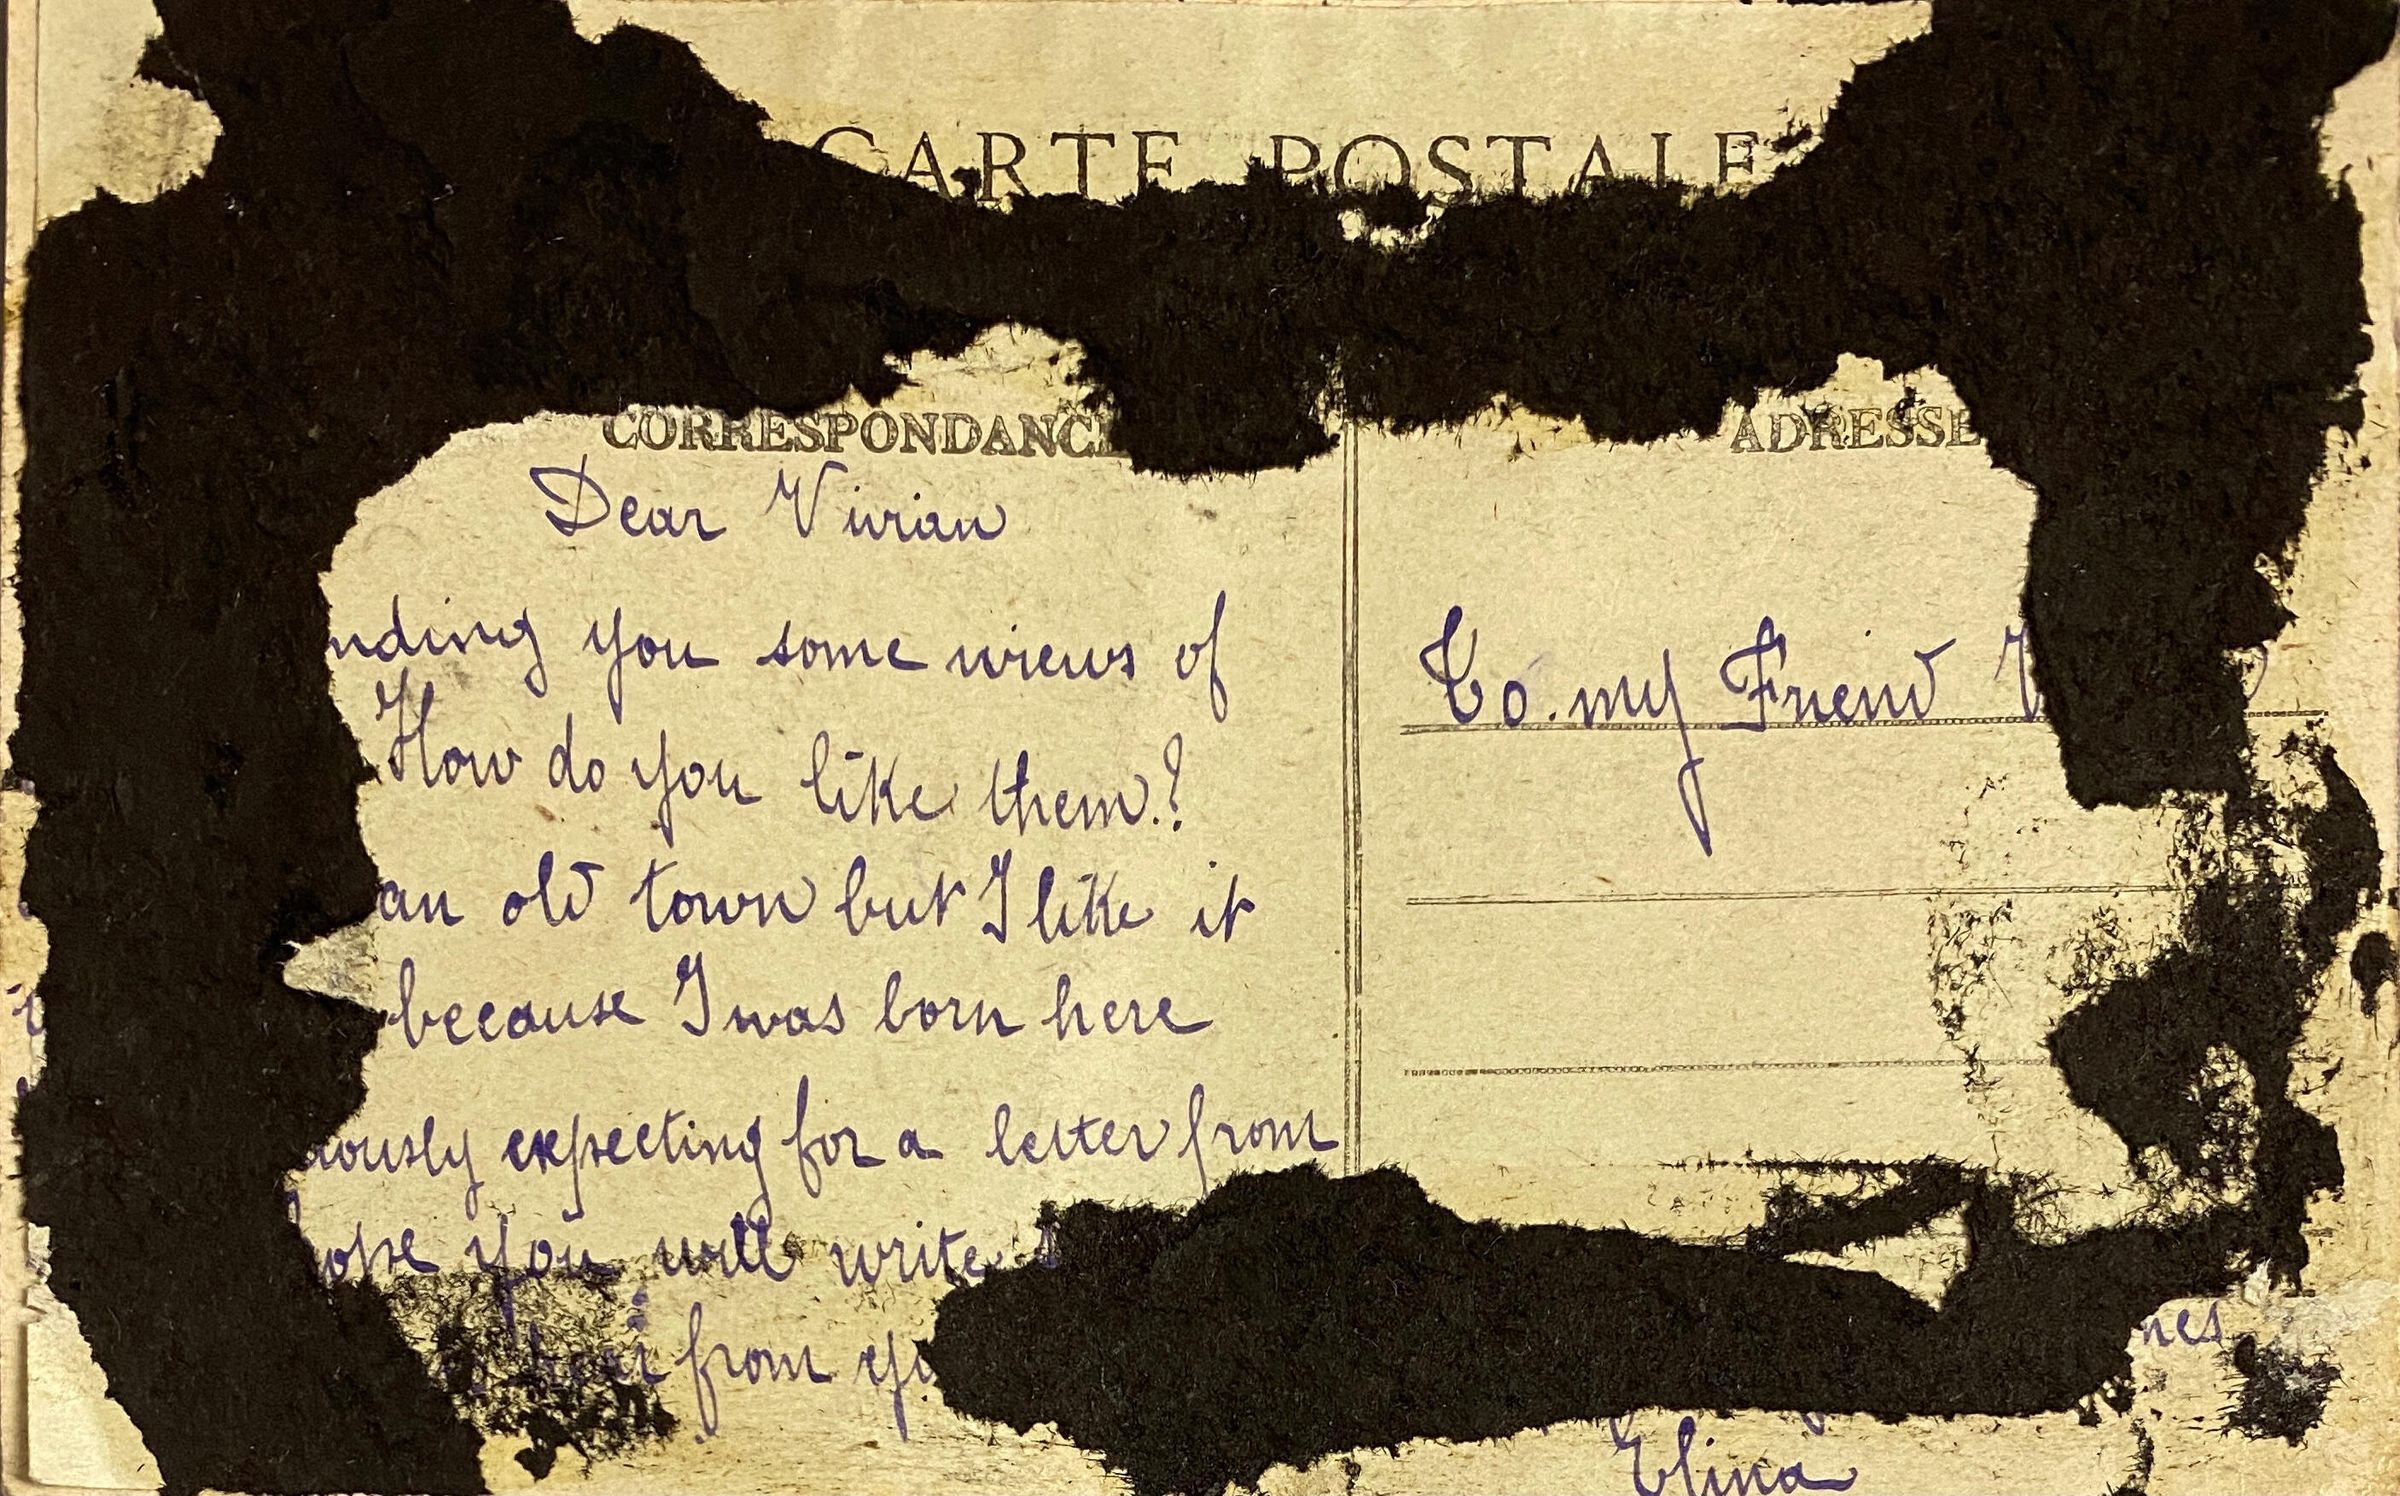 CARTE POSTALE
CORRESPONDANCE
Dear Vivian
nding you some views of
How do you like them?
an old town but I like it
because I was born here
iously expecting for a letter from
ope you will write
from
ADRESSE
To my Friend
nes
Elina